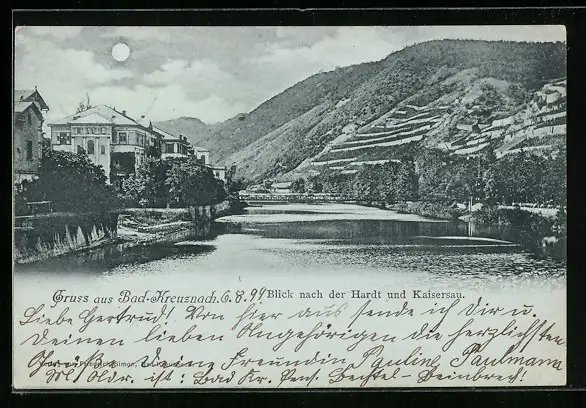 Gruss aus Bad-Kreuznach. 6.8.99 Blick nach der Hardt und Kaisersau.
Liebe Gertrud! Von hier aus sende ich Dir u.
Deinen lieben Angehörigen die herzlichsten
Grüße. Deine Freundin Pauline Paulmann
M/ Adr. ist: Bad Kr. Pens. Bechtel-Beinbrech!